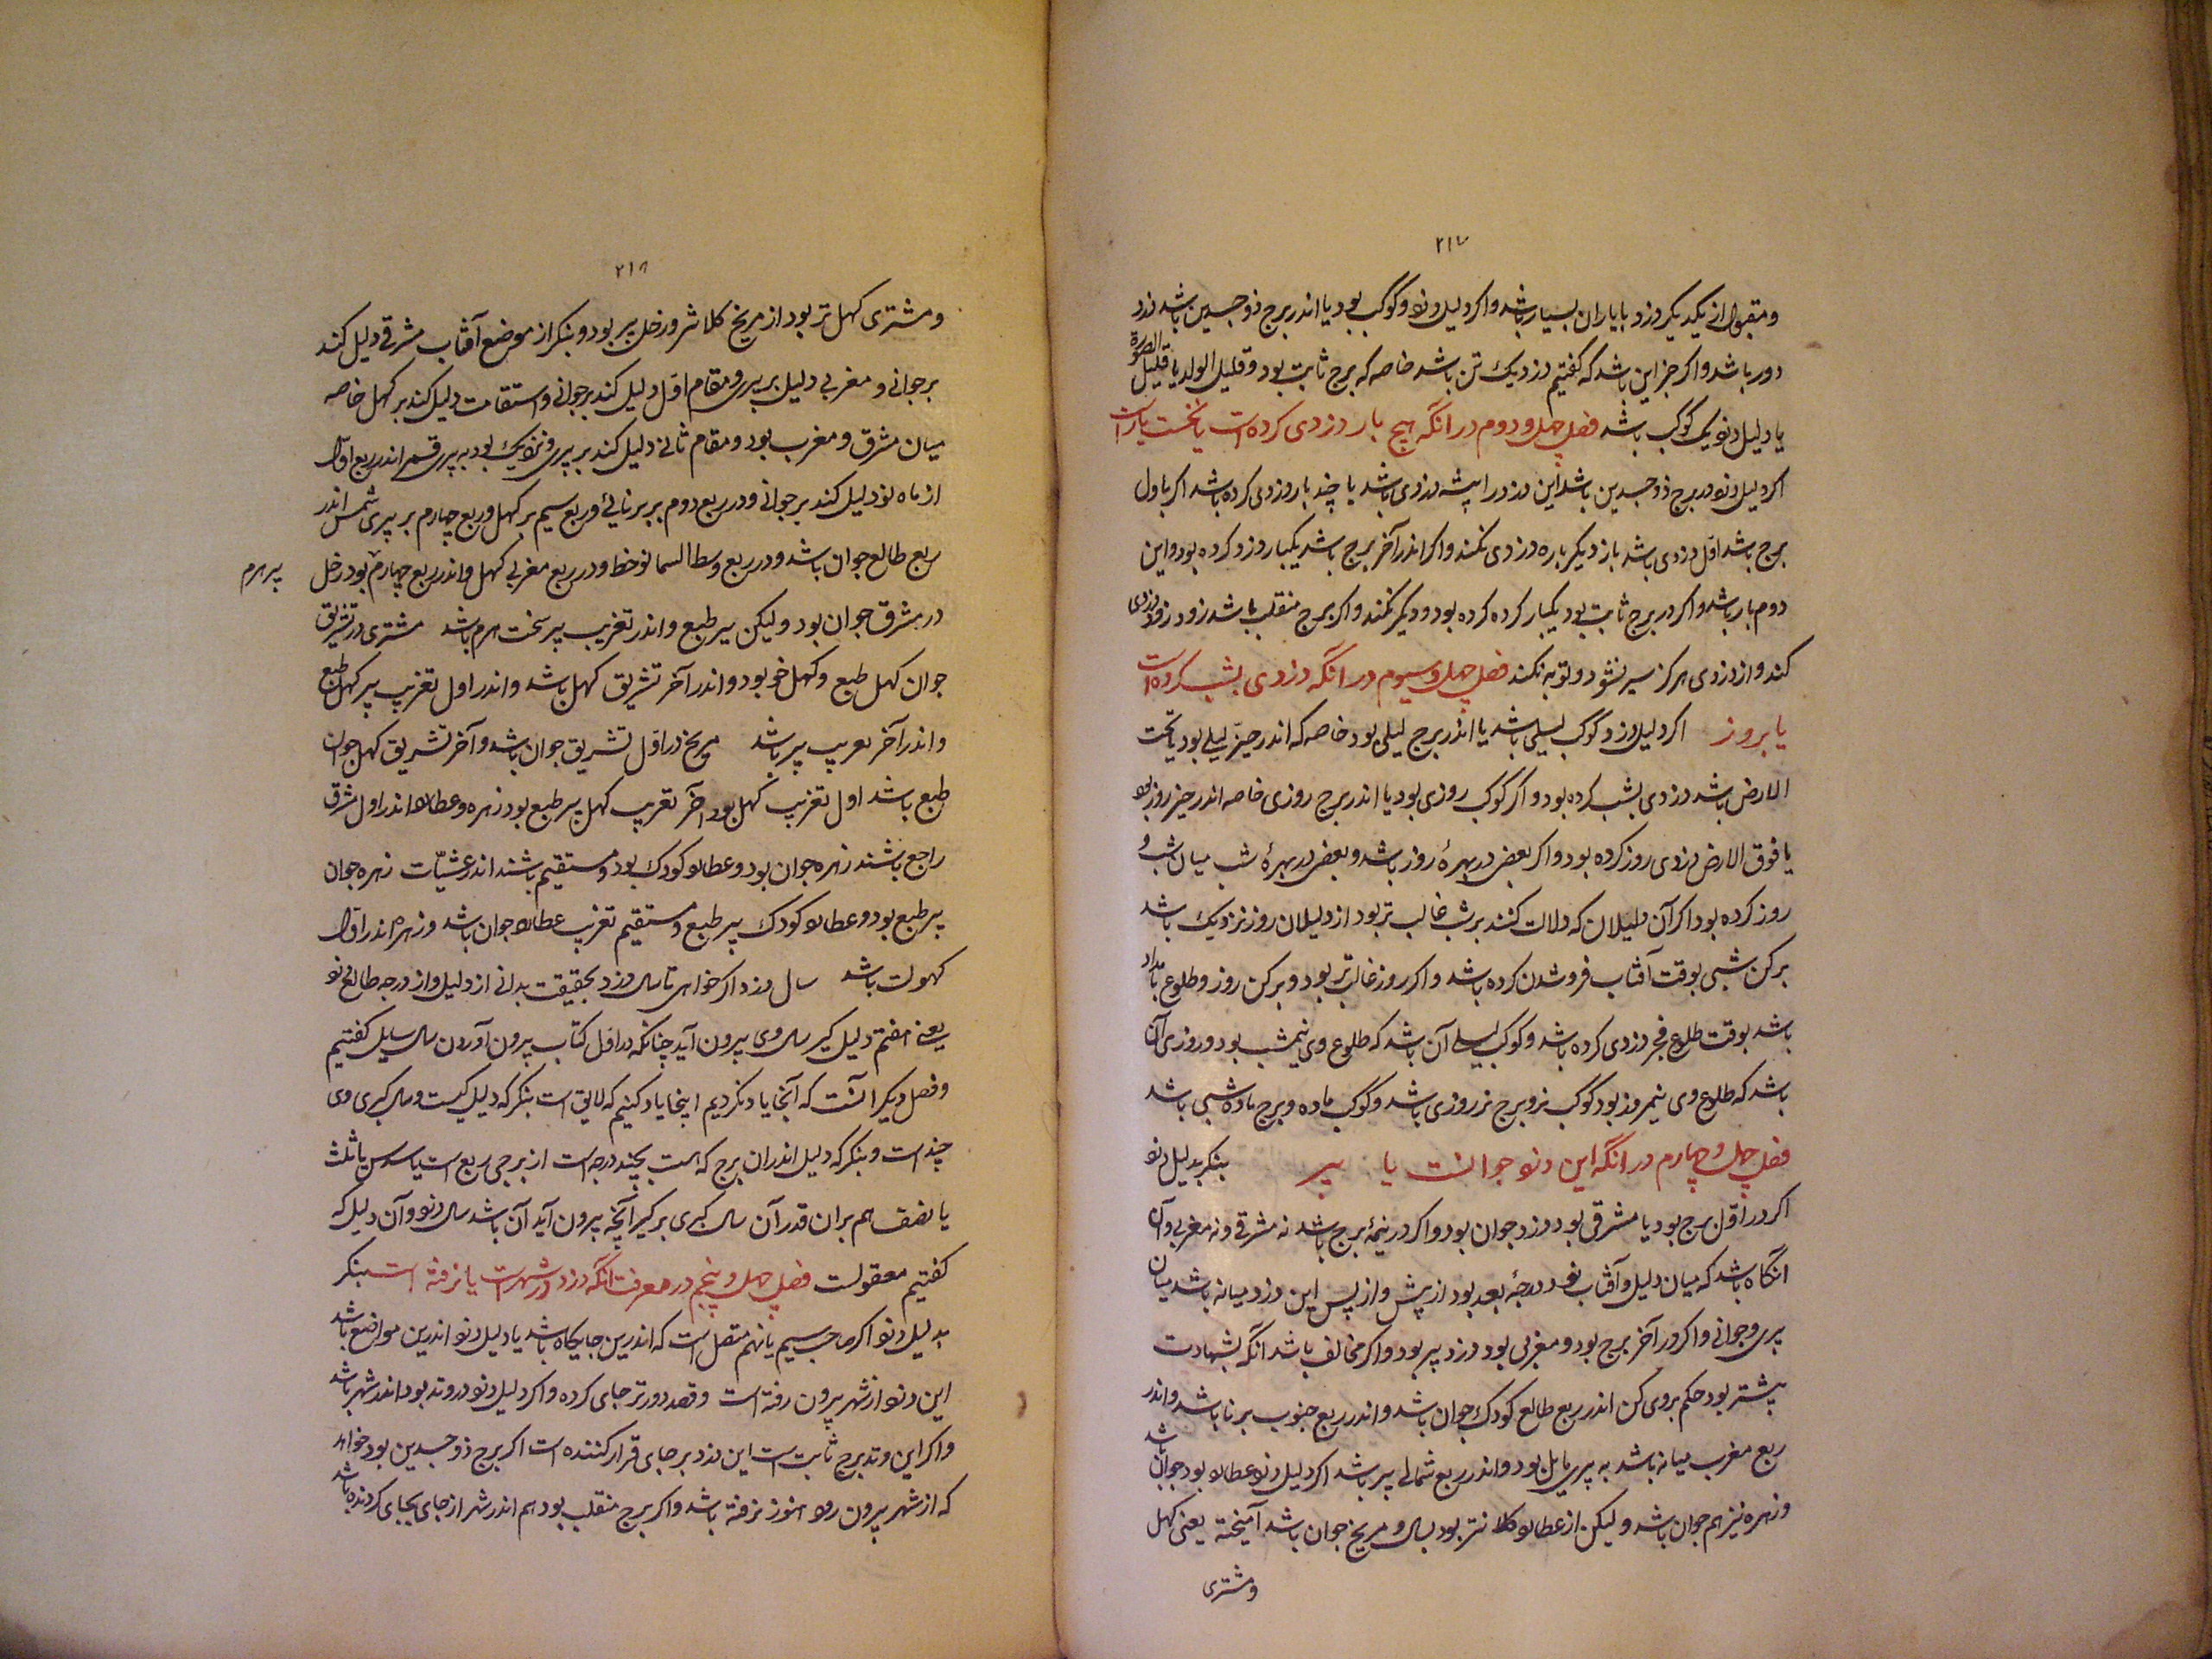 ۲۱۷
و مقبول از یکدیگر دزد با یاران بسیار باشد و اگر دلیل دزد دو کوکب بود یا اندر برج ذوجسدین باشد دزد
دور باشد و اگر جز این باشد که گفتیم دزد یک تن باشد خاصه که برج ثابت بود و قلیل الولد یا قلیل الصورة
یا دلیل دزد یک کوکب باشد فصل چهل و دوم در آنکه هیچ بار دزدی کرده است یا نخست بار است
اگر دلیل دزد در برج ذوجسدین باشد این دزد را پیشه دزدی باشد یا چند بار دزدی کرده باشد اگر باول
برج باشد اول دزدی باشد باز دیگر باره دزدی نکند و اگر اندر آخر برج باشد یکبار دزد کرده بود و این
دوم بار باشد و اگر در برج ثابت بود یکبار کرده کرده بود و دیگر نکند و اگر برج منقلب باشد زود زود دزدی
کند و از دزدی هرگز سیر نشود و توبه نکند فصل چهل و سیوم در آنکه دزدی بشب کرده است
یا بروز اگر دلیل دزد کوکب لیلی باشد یا اندر برج لیلی بود خاصه که اندر حیز لیلی بود یا تحت
الارض باشد دزدی بشب کرده بود و اگر کوکب روزی بود یا اندر برج روزی خاصه اندر حیز روز بود
یا فوق الارض دزدی روز کرده بود و اگر بعضی در بهرهٔ روز باشد و بعضی در بهرهٔ شب میان شب و
روز کرده بود اگر آن دلیلان که دلالت کنند بر شب غالب تر بود از دلیلان روز نزدیک باشد
برکن شبی بوقت آفتاب فروشدن کرده باشد و اگر روز غالب تر بود و برکن روز و طلوع بامداد
باشد بوقت طلوع فجر دزدی کرده باشد و کوکب لیلی آن باشد که طلوع وی نیمشب بود و روزی آن
باشد که طلوع وی نیمروز بود کوکب نر و برج نر روزی باشد و کوکب ماده و برج ماده شبی باشد
فصل چهل و چهارم در آنکه این دزد جوانست یا پیر بنگر بدلیل دزد
اگر در اول برج بود یا مشرقی بود دزد جوان بود و اگر در نیمهٔ برج باشد نه مشرقی و نه مغربی و آن
انگاه باشد که میان دلیل و آفتاب نود درجهٔ بعد بود از پیش و از پس این دزد میانه باشد میان
پیری و جوانی و اگر در آخر برج بود و مغربی بود دزد پیر بود و اگر مخالف باشد آنکه بشهادت
بیشتر بود حکم بروی کن اندر ربع طالع کودک جوان باشد و اندر ربع جنوب برنا باشد و اندر
ربع مغرب میانه باشد به پیری مایل بود و اندر ربع شمالی پیر باشد اگر دلیل دزد عطارد بود جوان باشد
و زهره نیز هم جوان باشد و لیکن از عطارد کلانتر بود بسال و مریخ جوان باشد آمیخته یعنی کهل
و مشتری
۲۱۸
و مشتری کهل تر بود از مریخ کلانتر و زحل پیر بود و بنگر از موضع آفتاب مشرقی دلیل کند
بر جوانی و مغربی دلیل بر پیری و مقام اول دلیل کند بر جوانی و استقامت دلیل کند بر کهل خاصه
میان مشرق و مغرب بود و مقام ثانی دلیل کند بر پیری و نزدیک بود به پیری قمر اندر ربع اول
از ماه نو دلیل کند بر جوانی و در ربع دوم بر برنائی و ربع سیم بر کهل و ربع چهارم بر پیری شمس اندر
ربع طالع جوان باشد و در ربع وسط السما نوخط و در ربع مغربی کهل و اندر ربع چهارم بود زحل
پیر هرم
در مشرق جوان بود و لیکن پیر طبع و اندر تغریب پیر سخت هرم باشد مشتری در تشریق
جوان کهل طبع و کهل خو بود و اندر آخر تشریق کهل باشد و اندر اول تغریب پیر کهل طبع
و اندر آخر تغریب پیر باشد مریخ در اول تشریق جوان باشد و آخر تشریق کهل جوان
طبع باشد اول تغریب کهل بود آخر تغریب کهل پیر طبع بود زهره و عطارد اندر اول مشرق
راجع باشند زهره جوان بود و عطارد کودک بود و مستقیم باشند اندر عشیّات زهره جوان
پیر طبع بود و عطارد کودک پیر طبع و مستقیم تغریب عطارد جوان باشد و زهره اندر اول
کهولت باشد سال دزد اگر خواهی تا سال دزد بحقیقت بدانی از دلیل و از درجه طالع نو
یعنی هفتم دلیل گیر سال وی بیرون آید چنانکه در اول کتاب بیرون آوردن سال سایل گفتیم
و فصل دیگر آنست که آنجا یاد نکردیم اینجا یاد کنیم که لایق است بنگر که دلیل کیست و سال کبری وی
چند است و بنگر که دلیل اندران برج که هست بچند درجه است از برجی ربع است یا سدس یا ثلث
یا نصف هم بران قدر آن سال کبری برگیر آنچه بیرون آید آن باشد سال دزد و آن دلیل که
گفتیم معقولست فصل چهل و پنجم در معرفت آنکه دزد در شهر است یا نرفته است بنگر
بدلیل دزد اگر صاحب سیم یا نهم متصل است که اندرین جایگاه باشد یا دلیل دزد اندرین مواضع باشد
این دزد از شهر بیرون رفته است و قصد دورتر جای کرده و اگر دلیل دزد در وتد بود اندر شهر باشد
و اگر این وتد برج ثابت است این دزد بر جای قرار کننده است اگر برج ذوجسدین بود خواهد
که از شهر بیرون رود هنوز نرفته باشد و اگر برج منقلب بود هم اندر شهر از جای بجای گردنده باشد